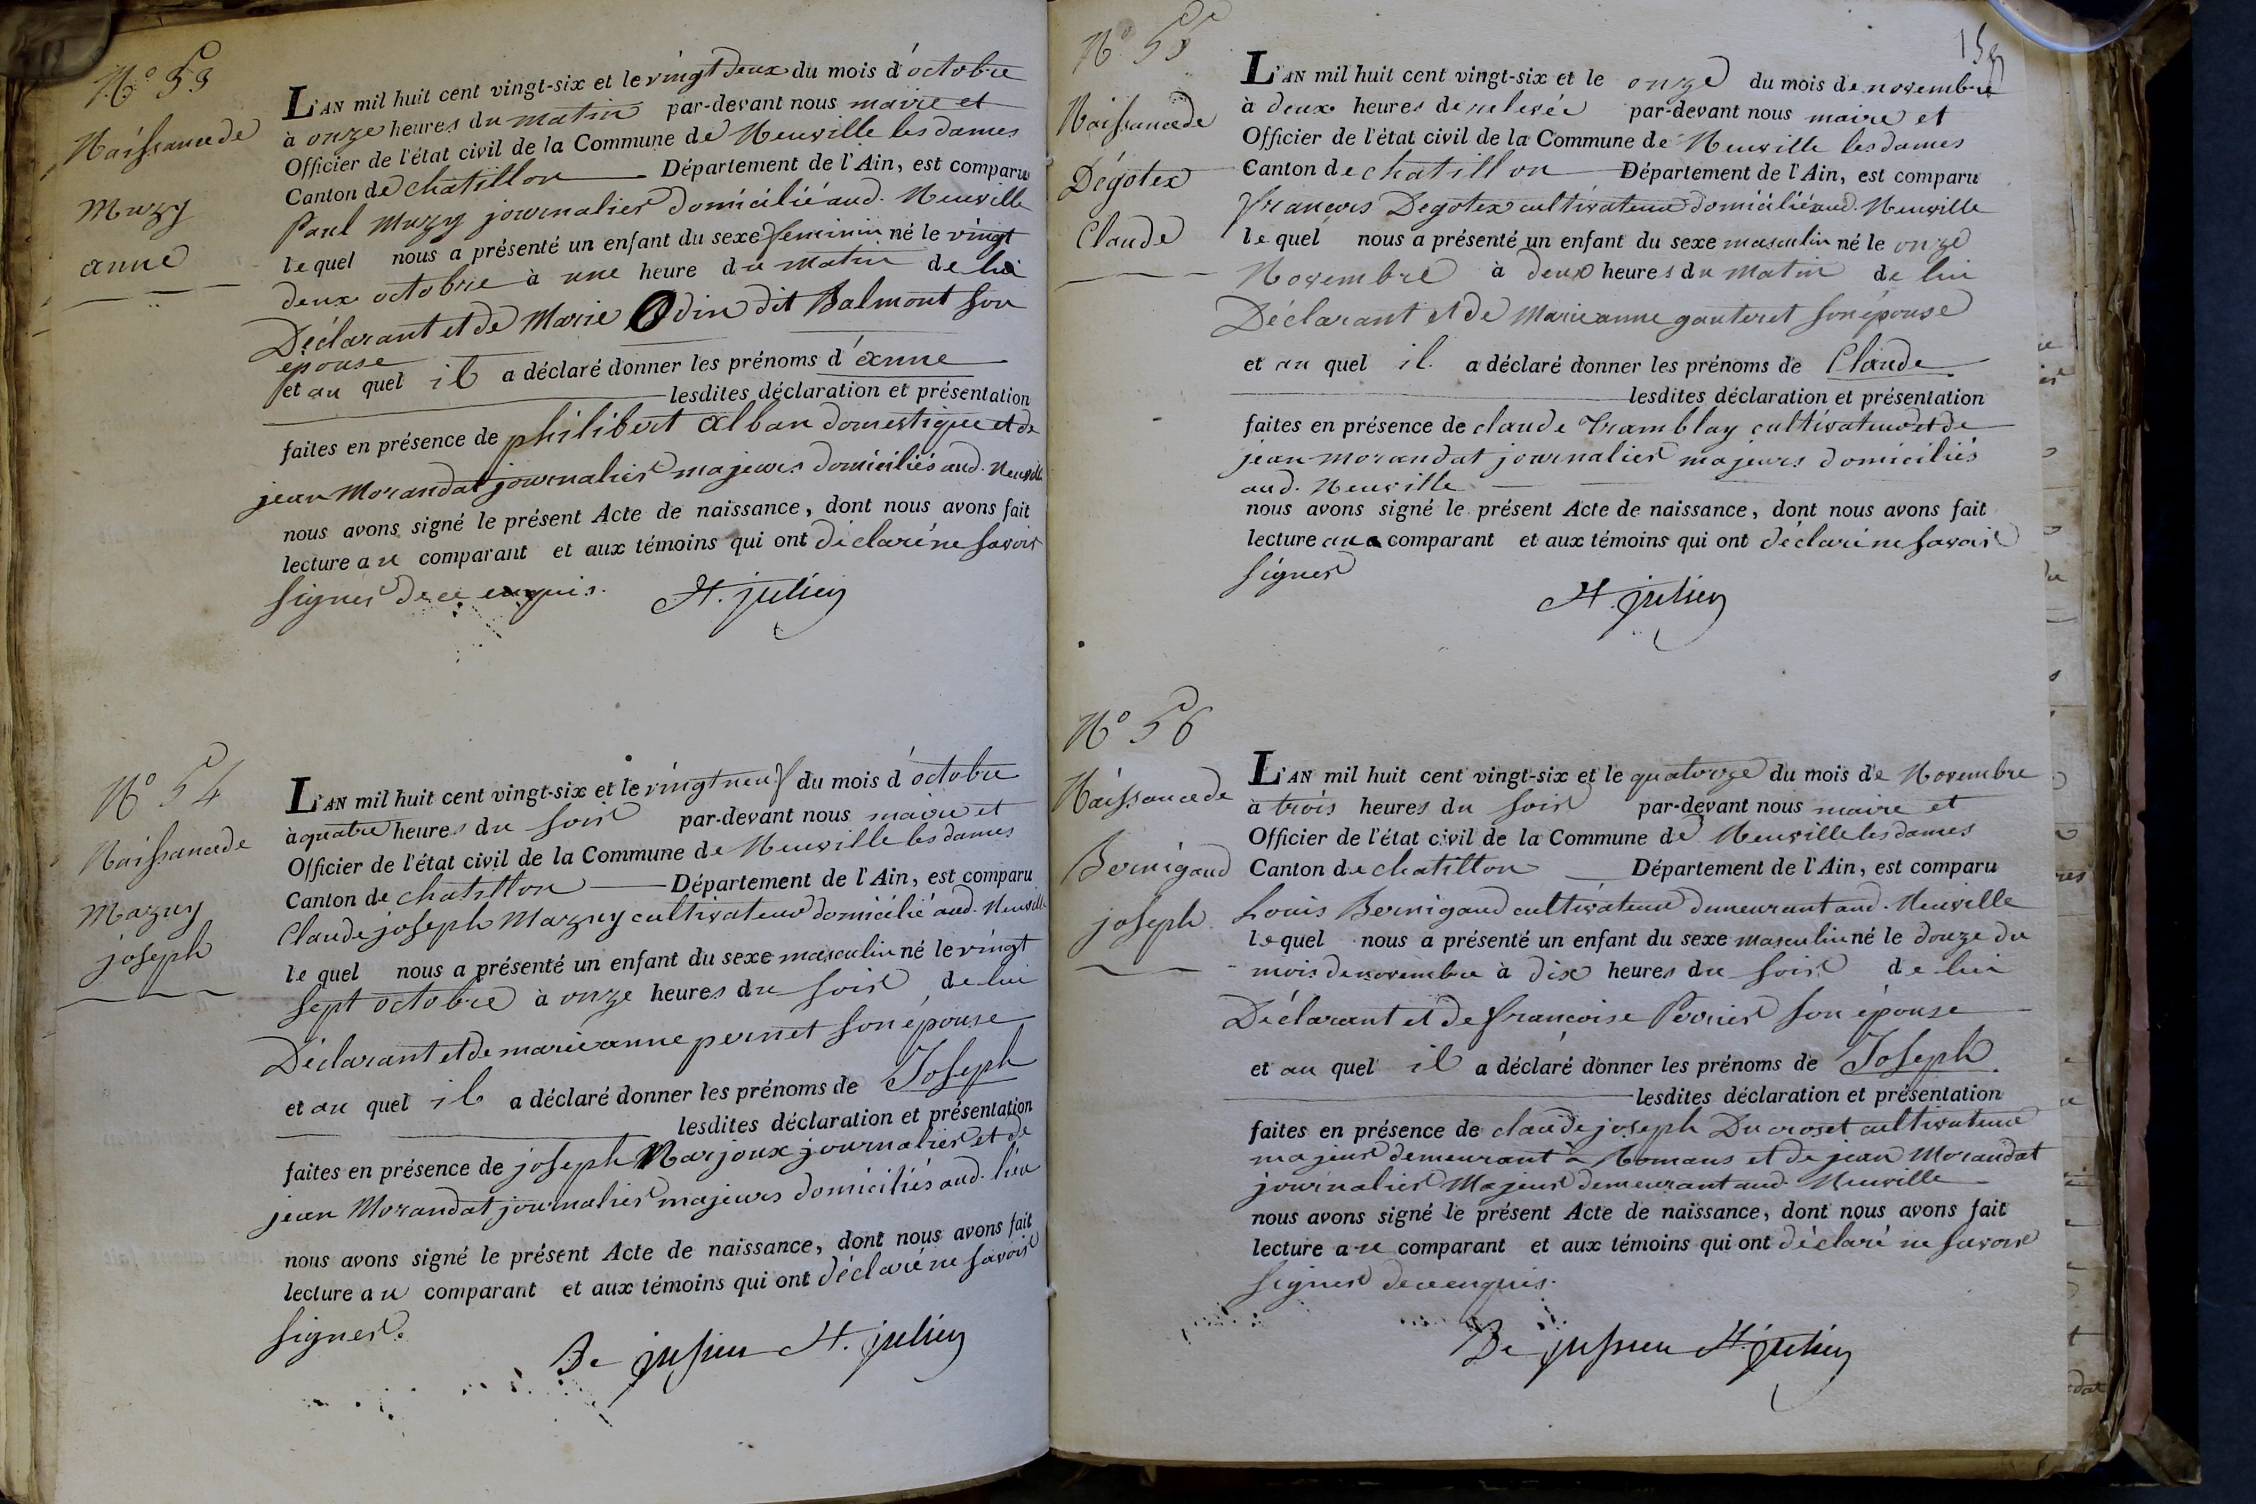 N.° 53
Naissance de
Muzy
anne
L'AN mil huit cent vingt-six et le vingt deux du mois d'octobre
à onze heures du matin par-devant nous maire et
Officier de l'état civil de la Commune de Neuville les dames
Canton de chatillon Département de l'Ain, est comparu
Paul Muzy journalier domicilié aud. Neuville
lequel nous a présenté un enfant du sexe feminin né le vingt
deux octobre à une heure du matin de lui
Déclarant et de Marie Odin dit Balmont son
épouse
et au quel il a déclaré donner les prénoms d'anne
lesdites déclaration et présentation
faites en présence de philibert alban domestique et de
jean Morandat journalier majeurs domiciliés aud. Neuville
nous avons signé le présent Acte de naissance, dont nous avons fait
lecture au comparant et aux témoins qui ont déclaré ne savoir
signer de ce enquis.
H. julien
N° 54
Naissance de
Mazuy
joseph
L'AN mil huit cent vingt-six et le vingt neuf du mois d'octobre
à quatre heures du soir par-devant nous maire et
Officier de l'état civil de la Commune de Neuville les dames
Canton de chatillon Département de l'Ain, est comparu
Claude joseph Mazuy cultivateur domicilié aud. Neuville
le quel nous a présenté un enfant du sexe masculin né le vingt
sept octobre à onze heures du soir de lui
Déclarant et de marie anne pernet son épouse
et au quel il a déclaré donner les prénoms de Joseph
lesdites déclaration et présentation
faites en présence de joseph Marjoux journalier et de
jean Morandat journalier majeurs domiciliés aud. lieu
nous avons signé le présent Acte de naissance, dont nous avons fait
lecture au comparant et aux témoins qui ont déclaré ne savoir
signer.
De jussieu H. julien
N° 55
Naissance de
Dégotex
Claude
L'AN mil huit cent vingt-six et le onze du mois de novembre
à deux heures de relevée par-devant nous maire et
Officier de l'état civil de la Commune de Neuville les dames
Canton de chatillon Département de l'Ain, est comparu
francois Degotex cultivateur domicilié aud. Neuville
le quel nous a présenté un enfant du sexe masculin né le onze
Novembre à deux heures du matin de lui
Déclarant et de Marie anne gauteret son épouse
et au quel il a déclaré donner les prénoms de Claude
lesdites déclaration et présentation
faites en présence de claude Tramblay cultivateur et de
jean morandat journalier majeurs domiciliés
aud. Neuville
nous avons signé le présent Acte de naissance, dont nous avons fait
lecture au comparant et aux témoins qui ont déclaré ne savoir
signer
H. julien
N° 56
Naissance de
Bernigaud
joseph
L'AN mil huit cent vingt-six et le quatorze du mois de Novembre
à trois heures du soir par-devant nous maire et
Officier de l'état civil de la Commune de Neuville les dames
Canton de chatillon Département de l'Ain, est comparu
Louis Bernigaud cultivateur demeurant aud. Neuville
le quel nous a présenté un enfant du sexe masculin né le douze du
mois de novembre à dix heures du soir de lui
Déclarant et de francoise Perrier son épouse
et au quel il a déclaré donner les prénoms de Joseph
lesdites déclaration et présentation
faites en présence de claude joseph Ducroset cultivateur
majeur demeurant à Romans et de jean Morandat
journalier Majeur demeurant aud. Neuville
nous avons signé le présent Acte de naissance, dont nous avons fait
lecture au comparant et aux témoins qui ont déclaré ne savoir
signer de ce enquis.
De jussieu H. julien